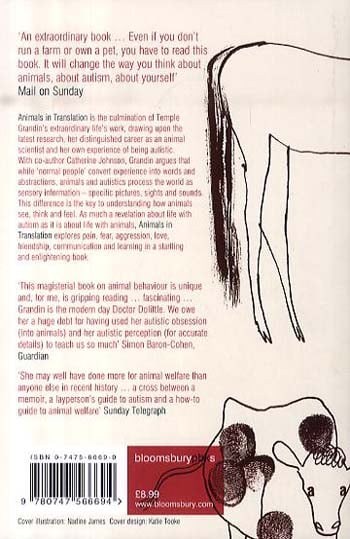 'An extraordinary book ... Even if you don't
run a farm or own a pet, you have to read this
book. It will change the way you think about
animals, about autism, about yourself'
Mail on Sunday
Animals in Translation is the culmination of Temple
Grandin's extraordinary life's work, drawing upon the
latest research, her distinguished career as an animal
scientist and her own experience of being autistic.
With co-author Catherine Johnson, Grandin argues that
while 'normal people' convert experience into words and
abstractions, animals and autistics process the world as
sensory information – specific pictures, sights and sounds.
This difference is the key to understanding how animals
see, think and feel. As much a revelation about life with
autism as it is about life with animals, Animals in
Translation explores pain, fear, aggression, love,
friendship, communication and learning in a startling
and enlightening book.
'This magisterial book on animal behaviour is unique
and, for me, is gripping reading ... fascinating ...
Grandin is the modern day Doctor Dolittle. We owe
her a huge debt for having used her autistic obsession
(into animals) and her autistic perception (for accurate
details) to teach us so much' Simon Baron-Cohen,
Guardian
'She may well have done more for animal welfare than
anyone else in recent history ... a cross between a
memoir, a layperson's guide to autism and a how-to
guide to animal welfare' Sunday Telegraph
ISBN 0-7475-6669-9
9 780747 566694 >
bloomsburypbks
£8.99
www.bloomsbury.com
Cover illustration: Nadine James Cover design: Katie Tooke